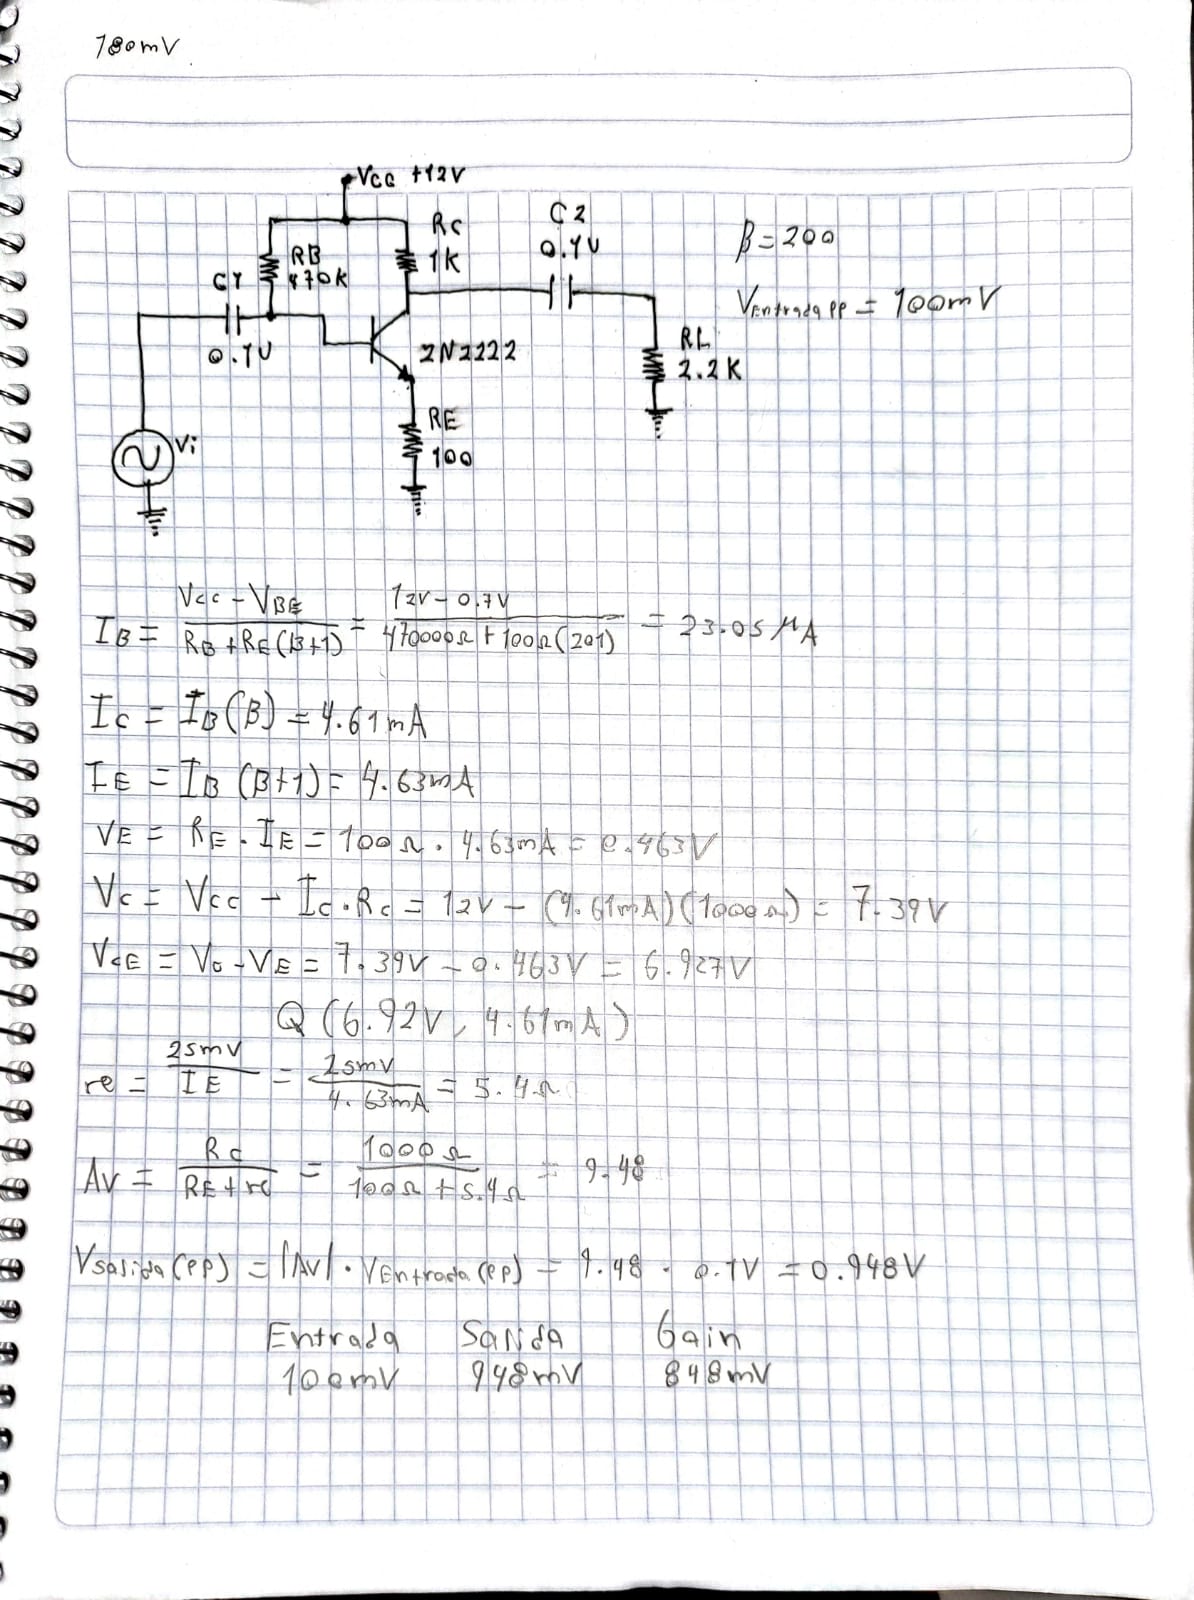 180mV
Vcc +12V
RC
1K
C2
0.1U
β=200
RB
470K
C1
0.1U
VEntrada pp = 100mV
2N2222
RL
2.2K
RE
100
Vi
IB = (Vcc - VBE) / (RB + RE(β+1)) = (12V - 0.7V) / (470000Ω + 100Ω(201)) = 23.05 μA
Ic = IB(β) = 4.61mA
IE = IB (β+1) = 4.63mA
VE = RE · IE = 100Ω · 4.63mA = 0.463V
Vc = Vcc - Ic·Rc = 12V - (4.61mA)(1000Ω) = 7.39V
VcE = Vc - VE = 7.39V - 0.463V = 6.927V
Q (6.92V, 4.61mA)
re = 25mV / IE = 25mV / 4.63mA = 5.4Ω
Av = Rc / (RE + re) = 1000Ω / (100Ω + 5.4Ω) = 9.48
Vsalida (PP) = |Av| · VEntrada (PP) = 9.48 · 0.1V = 0.948V
Entrada Salida Gain
100mV 948mV 848mV